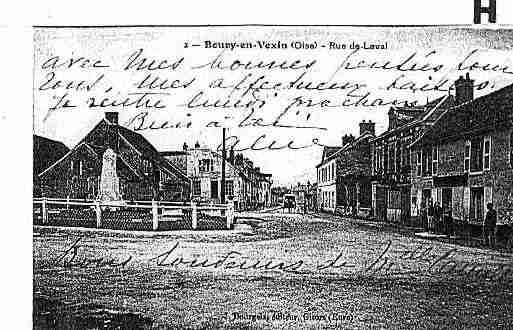 H
2 — Boury-en-Vexin (Oise) – Rue de Laval
avec mes bonnes pensées pour
tous, mes affectueux baisers
Je rentre lundi prochain
Bien à toi
Bons Souvenirs de M
J. Bourgeix, éditeur, Gisors (Eure)